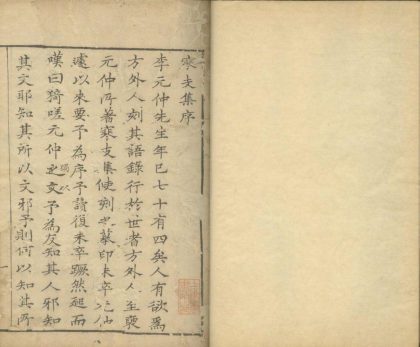 寒支集序
李元仲先生年已七十有四矣人有欲爲
方外人刻其語錄行於世者方外人至褁
元仲所著寒支集使刻之摹印未卒
遽以來要予為序予讀復未卒蹶然起而
嘆曰猗嗟元仲之文予為反知其人邪知
其文耶知其所以文邪予則何以知其所